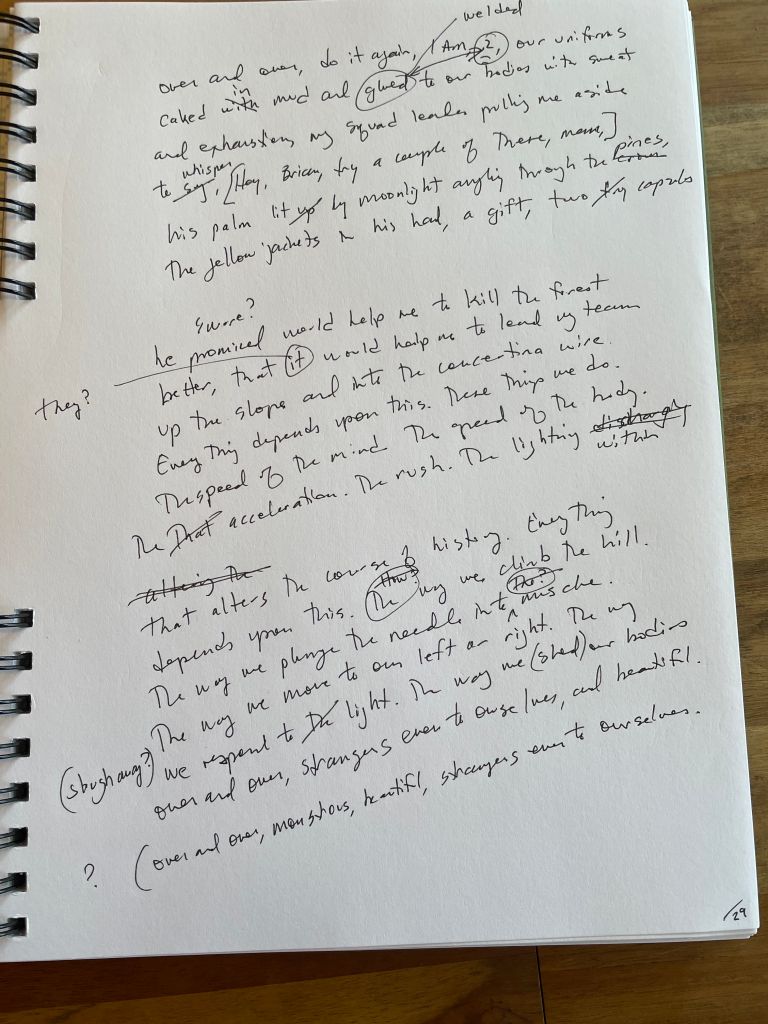 welded
over and over, do it again, 1 Am, 2, our uniforms
in
caked with mud and glued to our bodies with sweat
and exhaustion, my squad leader pulling me aside
whisper
to say, [Hey, Brian, try a couple of these, man,]
pines,
his palm lit up by moonlight angling through the
The yellow jackets in his hand, a gift, two tiny capsules
swore?
he promised would help me to kill the forest
they?
better, that it would help me to lead my team
up the slope and into the concertina wire.
Everything depends upon this. These things we do.
The speed of the mind. The speed of the body.
The That acceleration. The rush. The lightning
within
altering the
that alters the course of history. Everything
How?
depends upon this. The way we climb the hill.
the?
The way we plunge the needle into muscle.
The way we move to our left or right. The way
(slough away?)
we respond to the light. The way we (shed) our bodies
over and over, strangers even to ourselves, and beautiful.
? (over and over, monstrous, beautiful, strangers even to ourselves.
/29